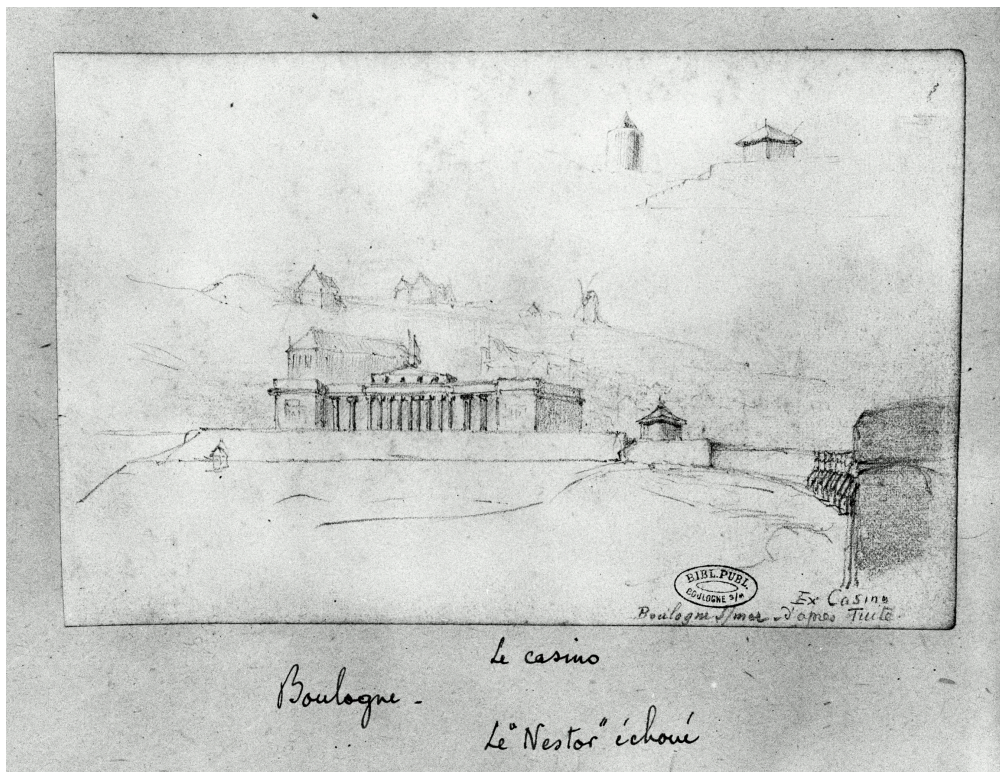 BIBL. PUBL.
BOULOGNE S/M
Ex Casino
Boulogne s/mer d'après Tuite.
Le casino
Boulogne -
Le "Nestor" échoué